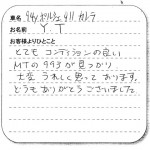 車名 94y ポルシェ 911 カレラ
お名前 Y.T
お客様よりひとこと
とても コンディションの良い
MTの993が見つかり
大変 うれしく思って おります。
どうもありがとう ございました。